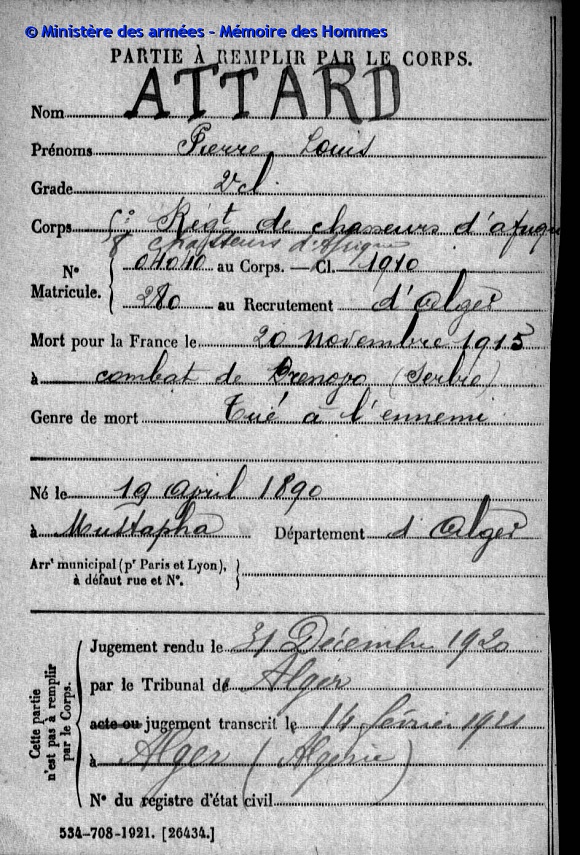 © Ministère des armées - Mémoire des Hommes
PARTIE À REMPLIR PAR LE CORPS.
Nom ATTARD
Prénoms Pierre Louis
Grade 2e cl.
Corps Régt de chasseurs d'afrique
chasseurs d'Afrique
N° Matricule. 04040 au Corps. — Cl. 1910
280 au Recrutement d'Alger
Mort pour la France le 20 novembre 1915
à combat de (Serbie)
Genre de mort Tué à l'ennemi
Né le 19 april 1890
à Mustapha Département d'Alger
Arrt municipal (pr Paris et Lyon), à défaut rue et N°.
Cette partie n'est pas à remplir par le Corps.
Jugement rendu le 31 Décembre 1920
par le Tribunal de Alger
acte ou jugement transcrit le 14 février 1921
à Alger (Algérie)
N° du registre d'état civil
534-708-1921. [26434.]